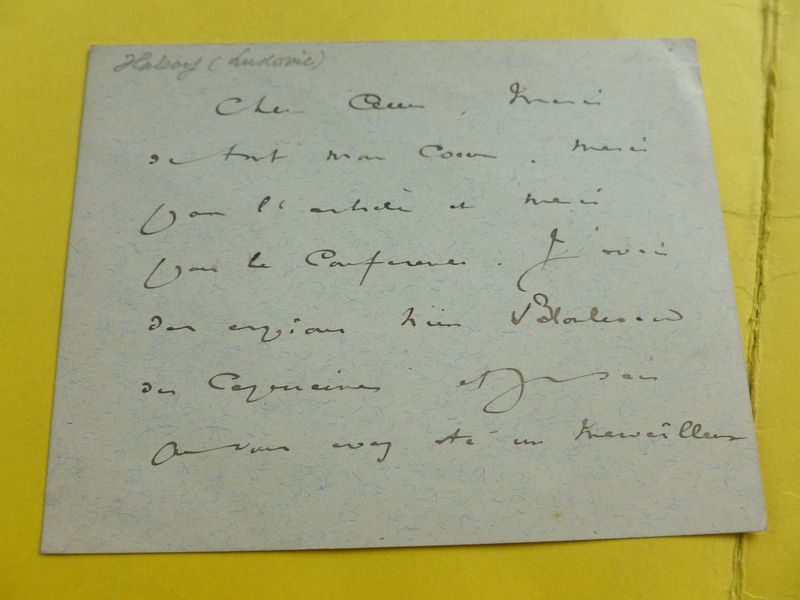 Halévy (Ludovic)
Cher Ami, Merci
de tout mon Coeur. Merci
pour l'article et merci
pour la Conférence. J'avais
des espions hier Boulevard
des Capucines et je sais
que vous avez été un merveilleux